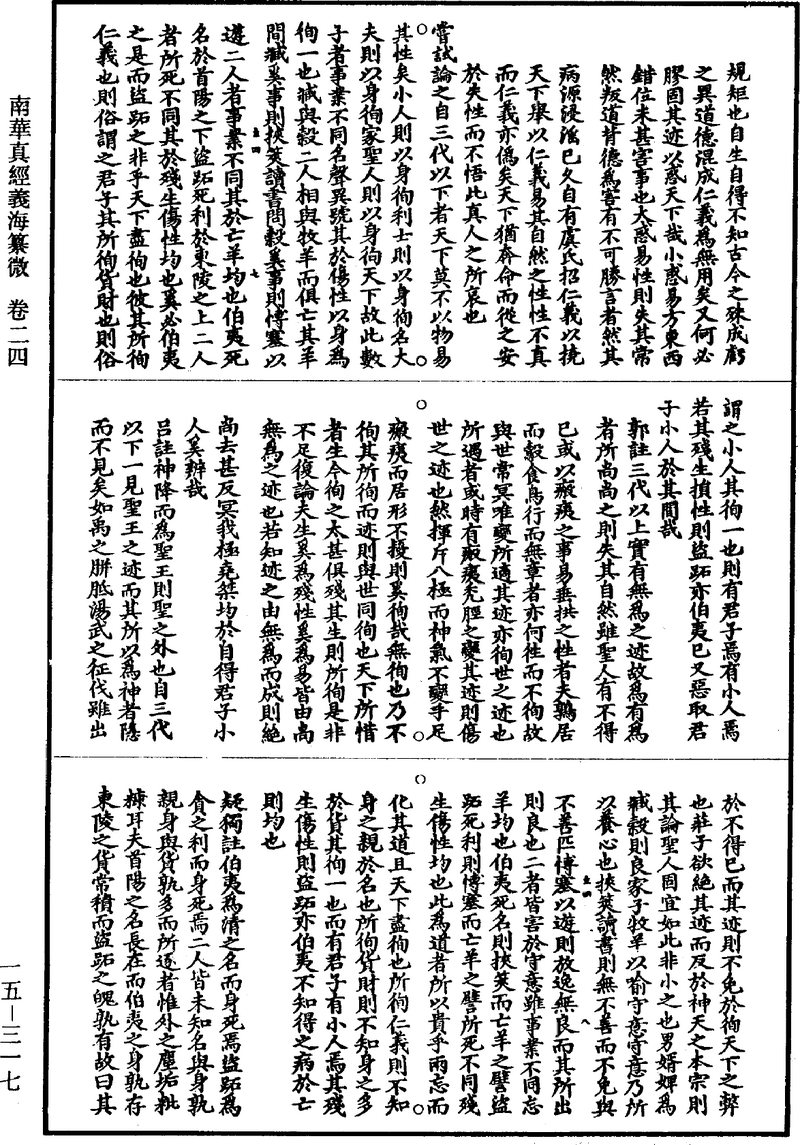 南華真經義海纂微　卷二四
一五—三一七
規矩也自生自得不知古今之殊成虧
之異道德混成仁義為無用矣又何必
膠固其迹以惑天下哉小惑易方東西
錯位未甚害事也大惑易性則失其常
然叛道背德為害有不可勝言者然其
病源浸淫已久自有虞氏招仁義以撓
天下舉以仁義易其自然之性性不真
而仁義亦偽矣天下猶奔命而從之安
於失性而不悟此真人之所哀也
嘗試論之自三代以下者天下莫不以物易
其性矣小人則以身徇利士則以身徇名大
夫則以身徇家聖人則以身徇天下故此數
子者事業不同名聲異號其於傷性以身為
徇一也臧與穀二人相與牧羊而俱亡其羊
問臧奚事則挾筴讀書問穀奚事則博塞以
遊二人者事業不同其於亡羊均也伯夷死
名於首陽之下盜跖死利於東陵之上二人
者所死不同其於殘生傷性均也奚必伯夷
之是而盜跖之非乎天下盡徇也彼其所徇
仁義也則俗謂之君子其所徇貨財也則俗
謂之小人其徇一也則有君子焉有小人焉
若其殘生損性則盜跖亦伯夷已又惡取君
子小人於其間哉
郭註三代以上實有無為之迹故為有為
者所尚尚之則失其自然雖聖人有不得
已或以瘢痍之事易垂拱之性者夫鶉居
而鷇食鳥行而無章者亦何往而不徇故
與世常冥唯變所適其迹亦徇世之迹也
所遇者或時有瘢痍禿脛之變其迹則傷
世之迹也然揮斥八極而神氣不變手足
瘢痍而居形不擾則奚徇哉無徇也乃不
徇其所徇而迹則與世同徇也天下所惜
者生今徇之太甚俱殘其生則所徇是非
不足復論夫生奚為殘性奚為易皆由尚
無為之迹也若知迹之由無為而成則絕
尚去甚反冥我極堯桀均於自得君子小
人奚辨哉
呂註神降而為聖王則聖之外也自三代
以下一見聖王之迹而其所以為神者隱
而不見矣如禹之胼胝湯武之征伐雖出
於不得已而其迹則不免於徇天下之弊
也莊子欲絕其迹而反於神天之本宗則
其論聖人固宜如此非小之也男婿婢為
臧穀則良家子牧羊以喻守意守意乃所
以養心也挾筴讀書則無不善而不免與
不善匹博塞以遊則放逸無良而其所出
則良也二者皆害於守意雖事業不同忘
羊均也伯夷死名則挾筴而亡羊之譬盜
跖死利則博塞而亡羊之譬所死不同殘
生傷性均也此為道者所以貴乎兩忘而
化其道且天下盡徇也所徇仁義則不知
身之親於名也所徇貨財則不知身之多
於貨其徇一也而有君子有小人焉其殘
生傷性則盜跖亦伯夷不知得之病於亡
則均也
疑獨註伯夷為清之名而身死焉盜跖為
貪之利而身死焉二人皆未知名與身孰
親身與貨孰多而所逐者惟外之塵垢粃
糠耳夫首陽之名長在而伯夷之身孰存
東陵之貨常積而盜跖之魄孰有故曰其